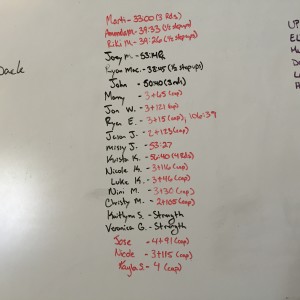 Marti - 33:00 (3 Rds)
Amanda M. - 39:33 (1/2 stepups)
Riki M. - 39:26 (1/2 stepups)
Joey M. - 53:14
Ryan Mac. - 38:45 (1/2 stepups)
John - 50:40 (3 rds)
Manny - 3+65 (cap)
Jon W. - 3+121 (cap)
Ryan E. - 3+15 (cap), 106:39
Jason J. - 2+123 (cap)
missy J. - 53:27
Krista K. - 56:40 (4 Rds)
Nicole K. - 3+116 (cap)
Luke K. - 3+46 (cap)
Nini M. - 3+30 (cap)
Christy M. - 2+105 (cap)
Kaitlynn S. - Strength
Veronica G. - Strength
Jose - 4+91 (cap)
Nicole - 3+115 (cap)
Kayla S. - 4 (cap)
back
UP
EL